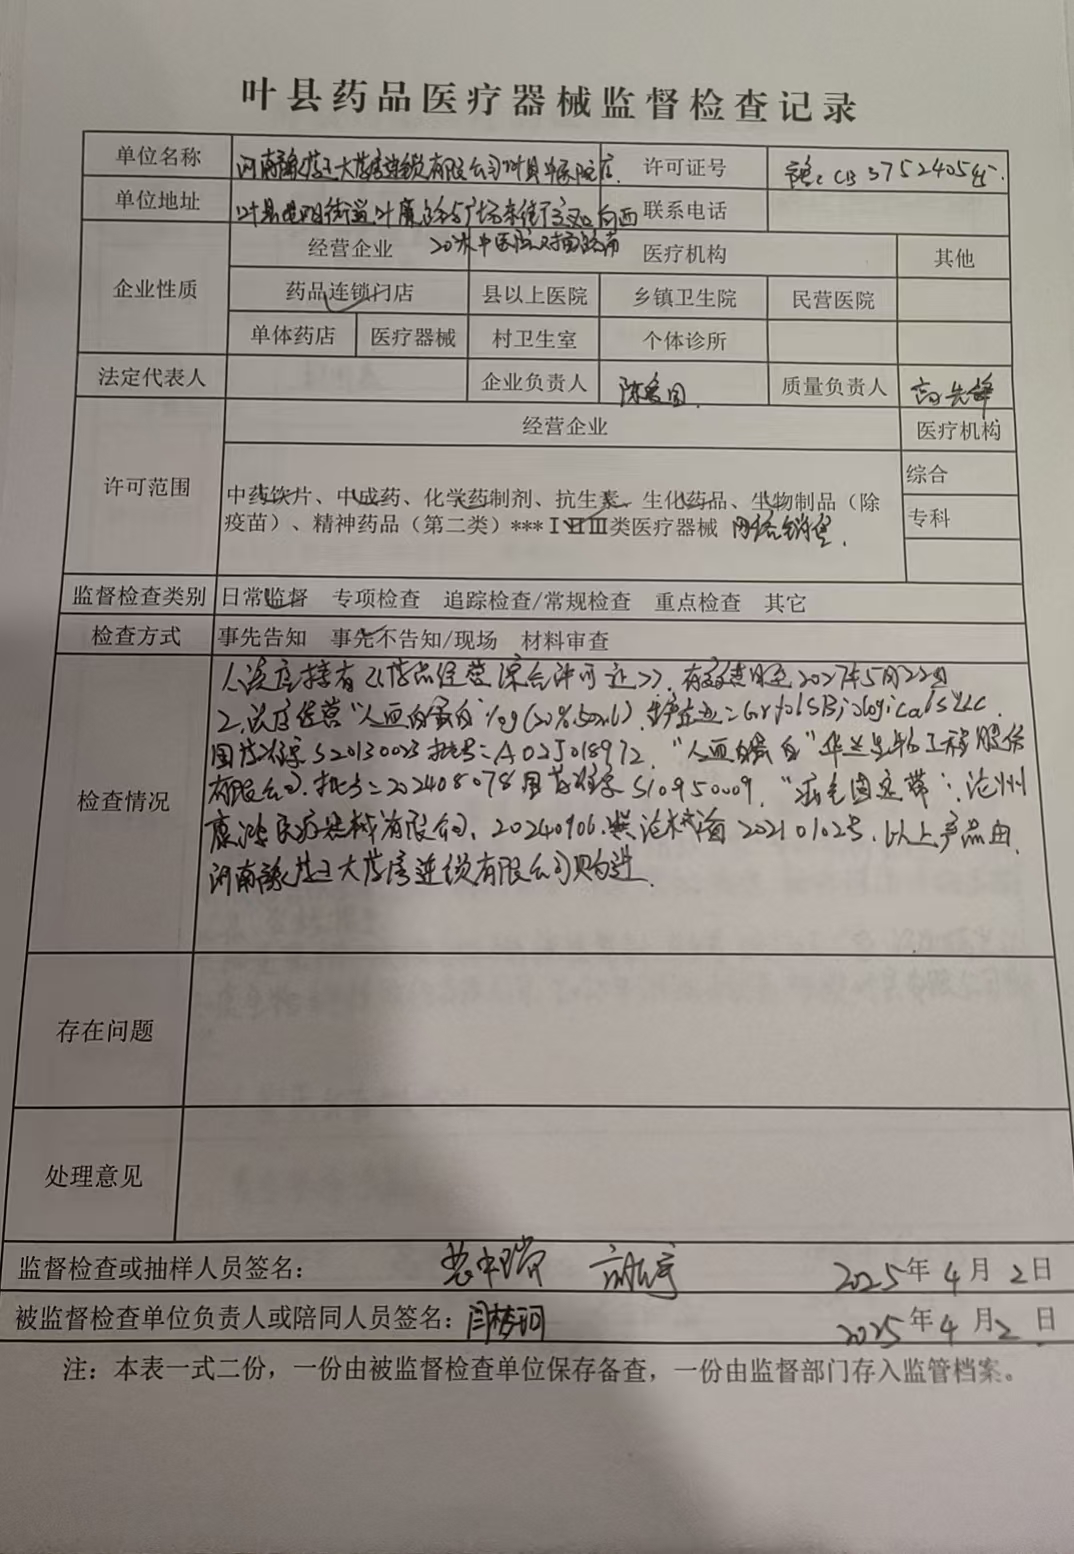 叶县药品医疗器械监督检查记录
单位名称 河南豫药王大药房连锁有限公司叶县 店 许可证号 CB3752405
单位地址 叶县昆阳街道叶廉路与广场东街交叉口向西 联系电话
20米中医院对面路南
企业性质 经营企业 医疗机构 其他
药品连锁门店 县以上医院 乡镇卫生院 民营医院
单体药店 医疗器械 村卫生室 个体诊所
法定代表人 企业负责人 陈 质量负责人 先锋
许可范围 经营企业 医疗机构
综合
中药饮片、中成药、化学药制剂、抗生素、生化药品、生物制品（除
疫苗）、精神药品（第二类）***ⅠⅡⅢ类医疗器械 网络销售.
专科
监督检查类别 日常监督 专项检查 追踪检查/常规检查 重点检查 其它
检查方式 事先告知 事先不告知/现场 材料审查
检查情况
1、该店持有《药品经营 许可证》，有效期至2027年5月22日
2、该店经营“人血白蛋白”10g(20%,50ml)，生产企业：Grifols Biologicals LLC.
国药准字S20130023 批号：A025018972，“人血白蛋白”华兰生物工程股份
有限公司，批号：202408078 国药准字S10950009，“ 固定带”，沧州
康 医疗器械有限公司，20240906，冀沧械备20210102号，以上产品由
河南豫药王大药房连锁有限公司购进.
存在问题
处理意见
监督检查或抽样人员签名： 2025年4月2日
被监督检查单位负责人或陪同人员签名：闫梦珂 2025年4月2日
注：本表一式二份，一份由被监督检查单位保存备查，一份由监督部门存入监管档案。